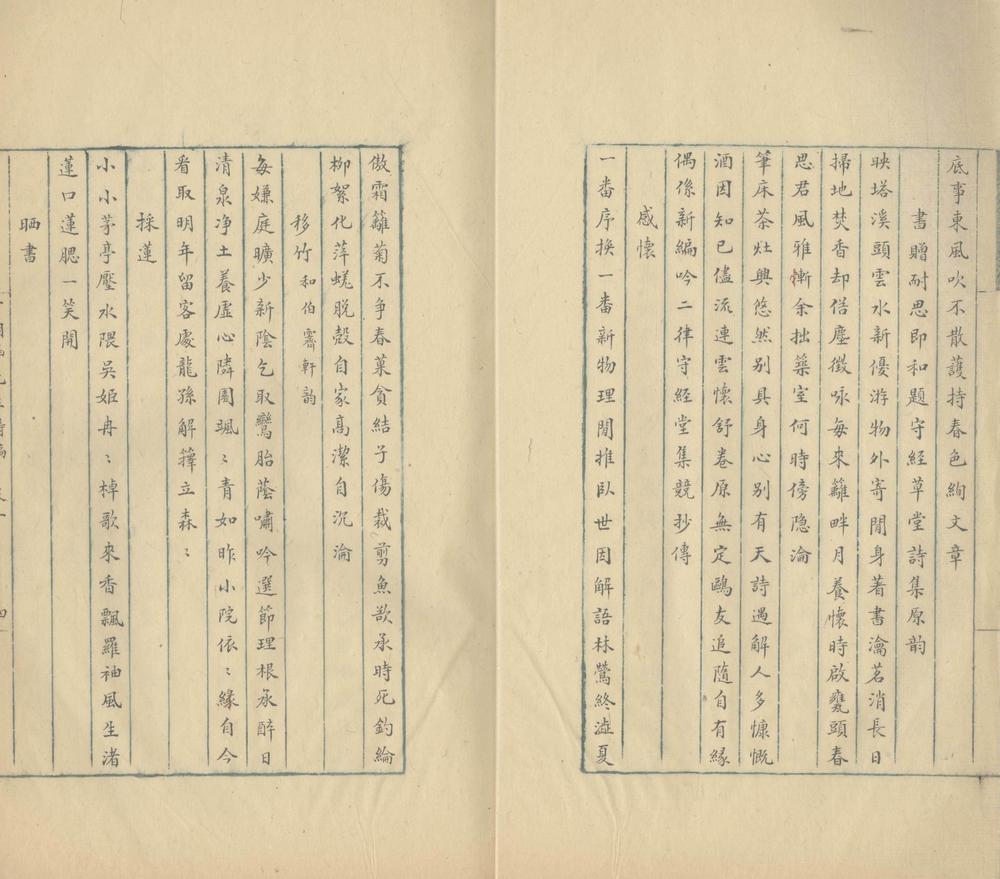 底事東風吹不散護持春色絢文章
書贈耐思即和題守經草堂詩集原韵
映塔溪頭雲水新優游物外寄閒身著書瀹茗消長日
掃地焚香却俗塵微咏每來籬畔月養懷時啟甕頭春
思君風雅慚余拙築室何時傍隐淪
筆床茶灶興悠然别具身心别有天詩遇解人多慷慨
酒因知已儘流連雲懷舒卷原無定鷗友追隨自有緣
偶係新編吟二律守經堂集競抄傳
感懷
一番序换一番新物理閒推臥世因解語林鶯終澁夏
傲霜籬菊不争春菓貪結子傷裁剪魚欲承時死釣綸
柳絮化萍蜣脱殼自家高潔自沉淪
移竹和伯霽軒韵
每嫌庭曠少新陰乞取鸞胎蔭嘯吟選節理根承醉日
清泉净土養虛心隣園颯〻青如昨小院依〻緣自今
看取明年留客處龍孫解籜立森〻
採蓮
小小茅亭壓水隈吳姬冉〻棹歌來香飄羅袖風生渚
蓮口蓮腮一笑開
晒書